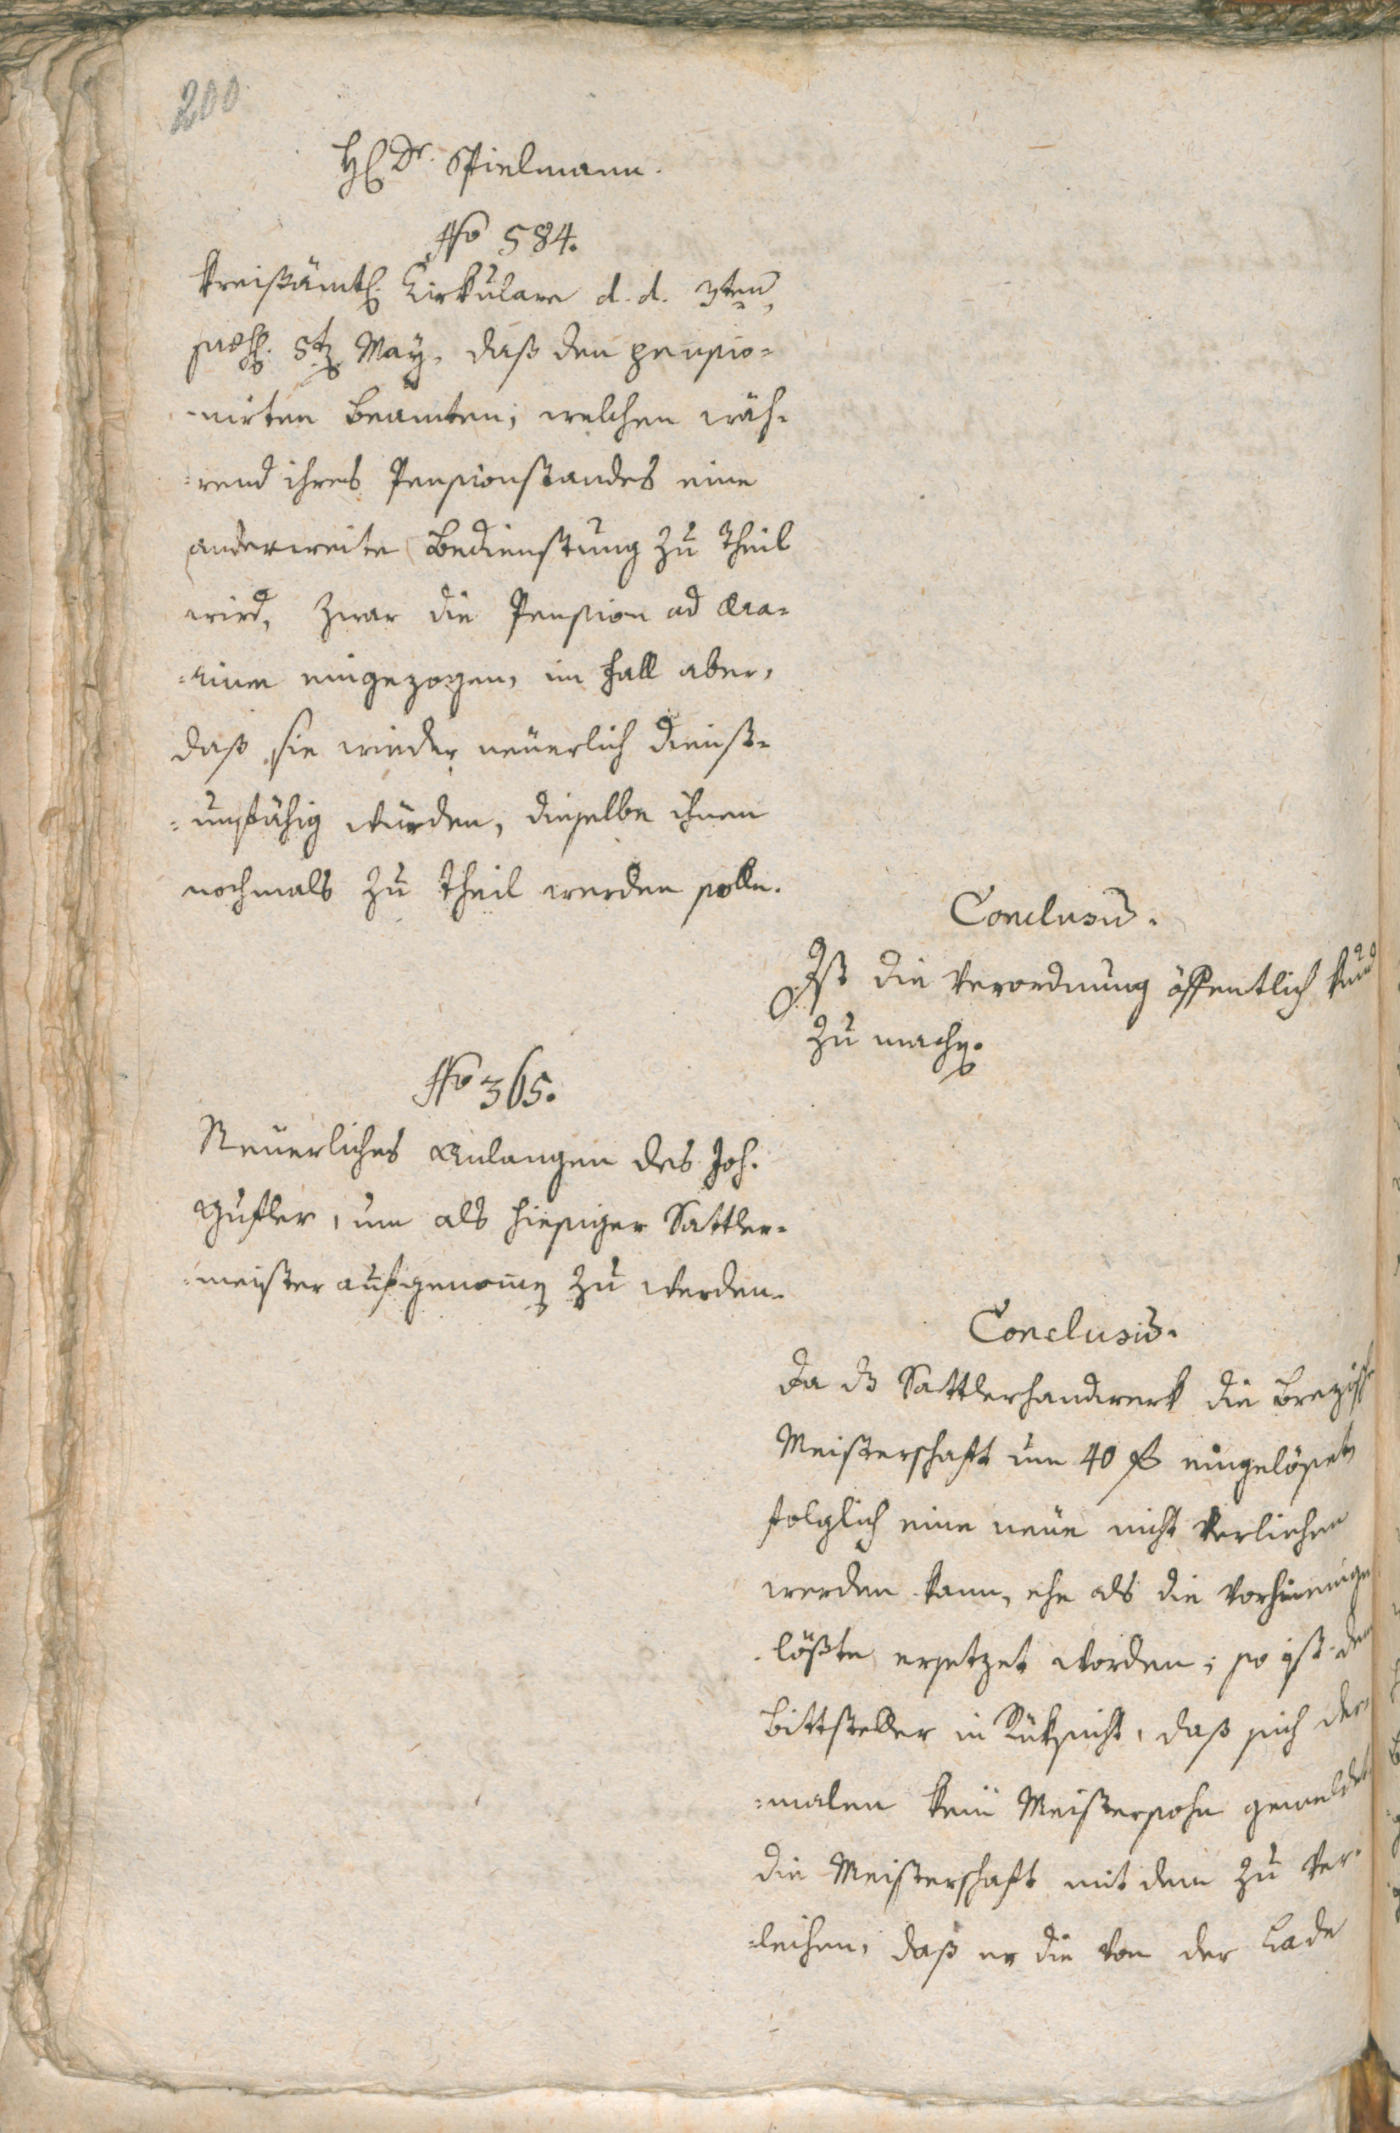 200
H. Dr. Spielmann.
No 584.
Kreißämtl. Cirkulare d. d. 3ten
May, daß den pensio-
-nirten Beamten, welchen wäh-
-rend ihres Pensionsstandes eine
anderweite Bedienstung zu Theil
wird, zwar die Pension ad Aera-
-rium eingezogen, im Fall aber,
daß sie wieder neüerlich dienst-
-unfähig würden, dieselbe ihnen
nochmals zu Theil werden solle.
Conclusum.
Ist die Verordnung öffentlich kund
zu machen.
No 365.
Neuerliches Anlangen des Joh.
Gufler, um als hiesiger Sattler-
-meister aufgenomen zu werden.
Conclusum.
Da das Sattlerhandwerk die
Meisterschaft um 40 f eingelöset,
folglich eine neüe nicht verliehen
werden kann, ehe als die vorhin einge
-lößte ersetzet worden; so ist dem
Bittsteller in Rüksicht, daß sich der-
-malen kein Meistersohn gemeldet
die Meisterschaft mit dem zu ver-
-leihen, daß er die von der Lade